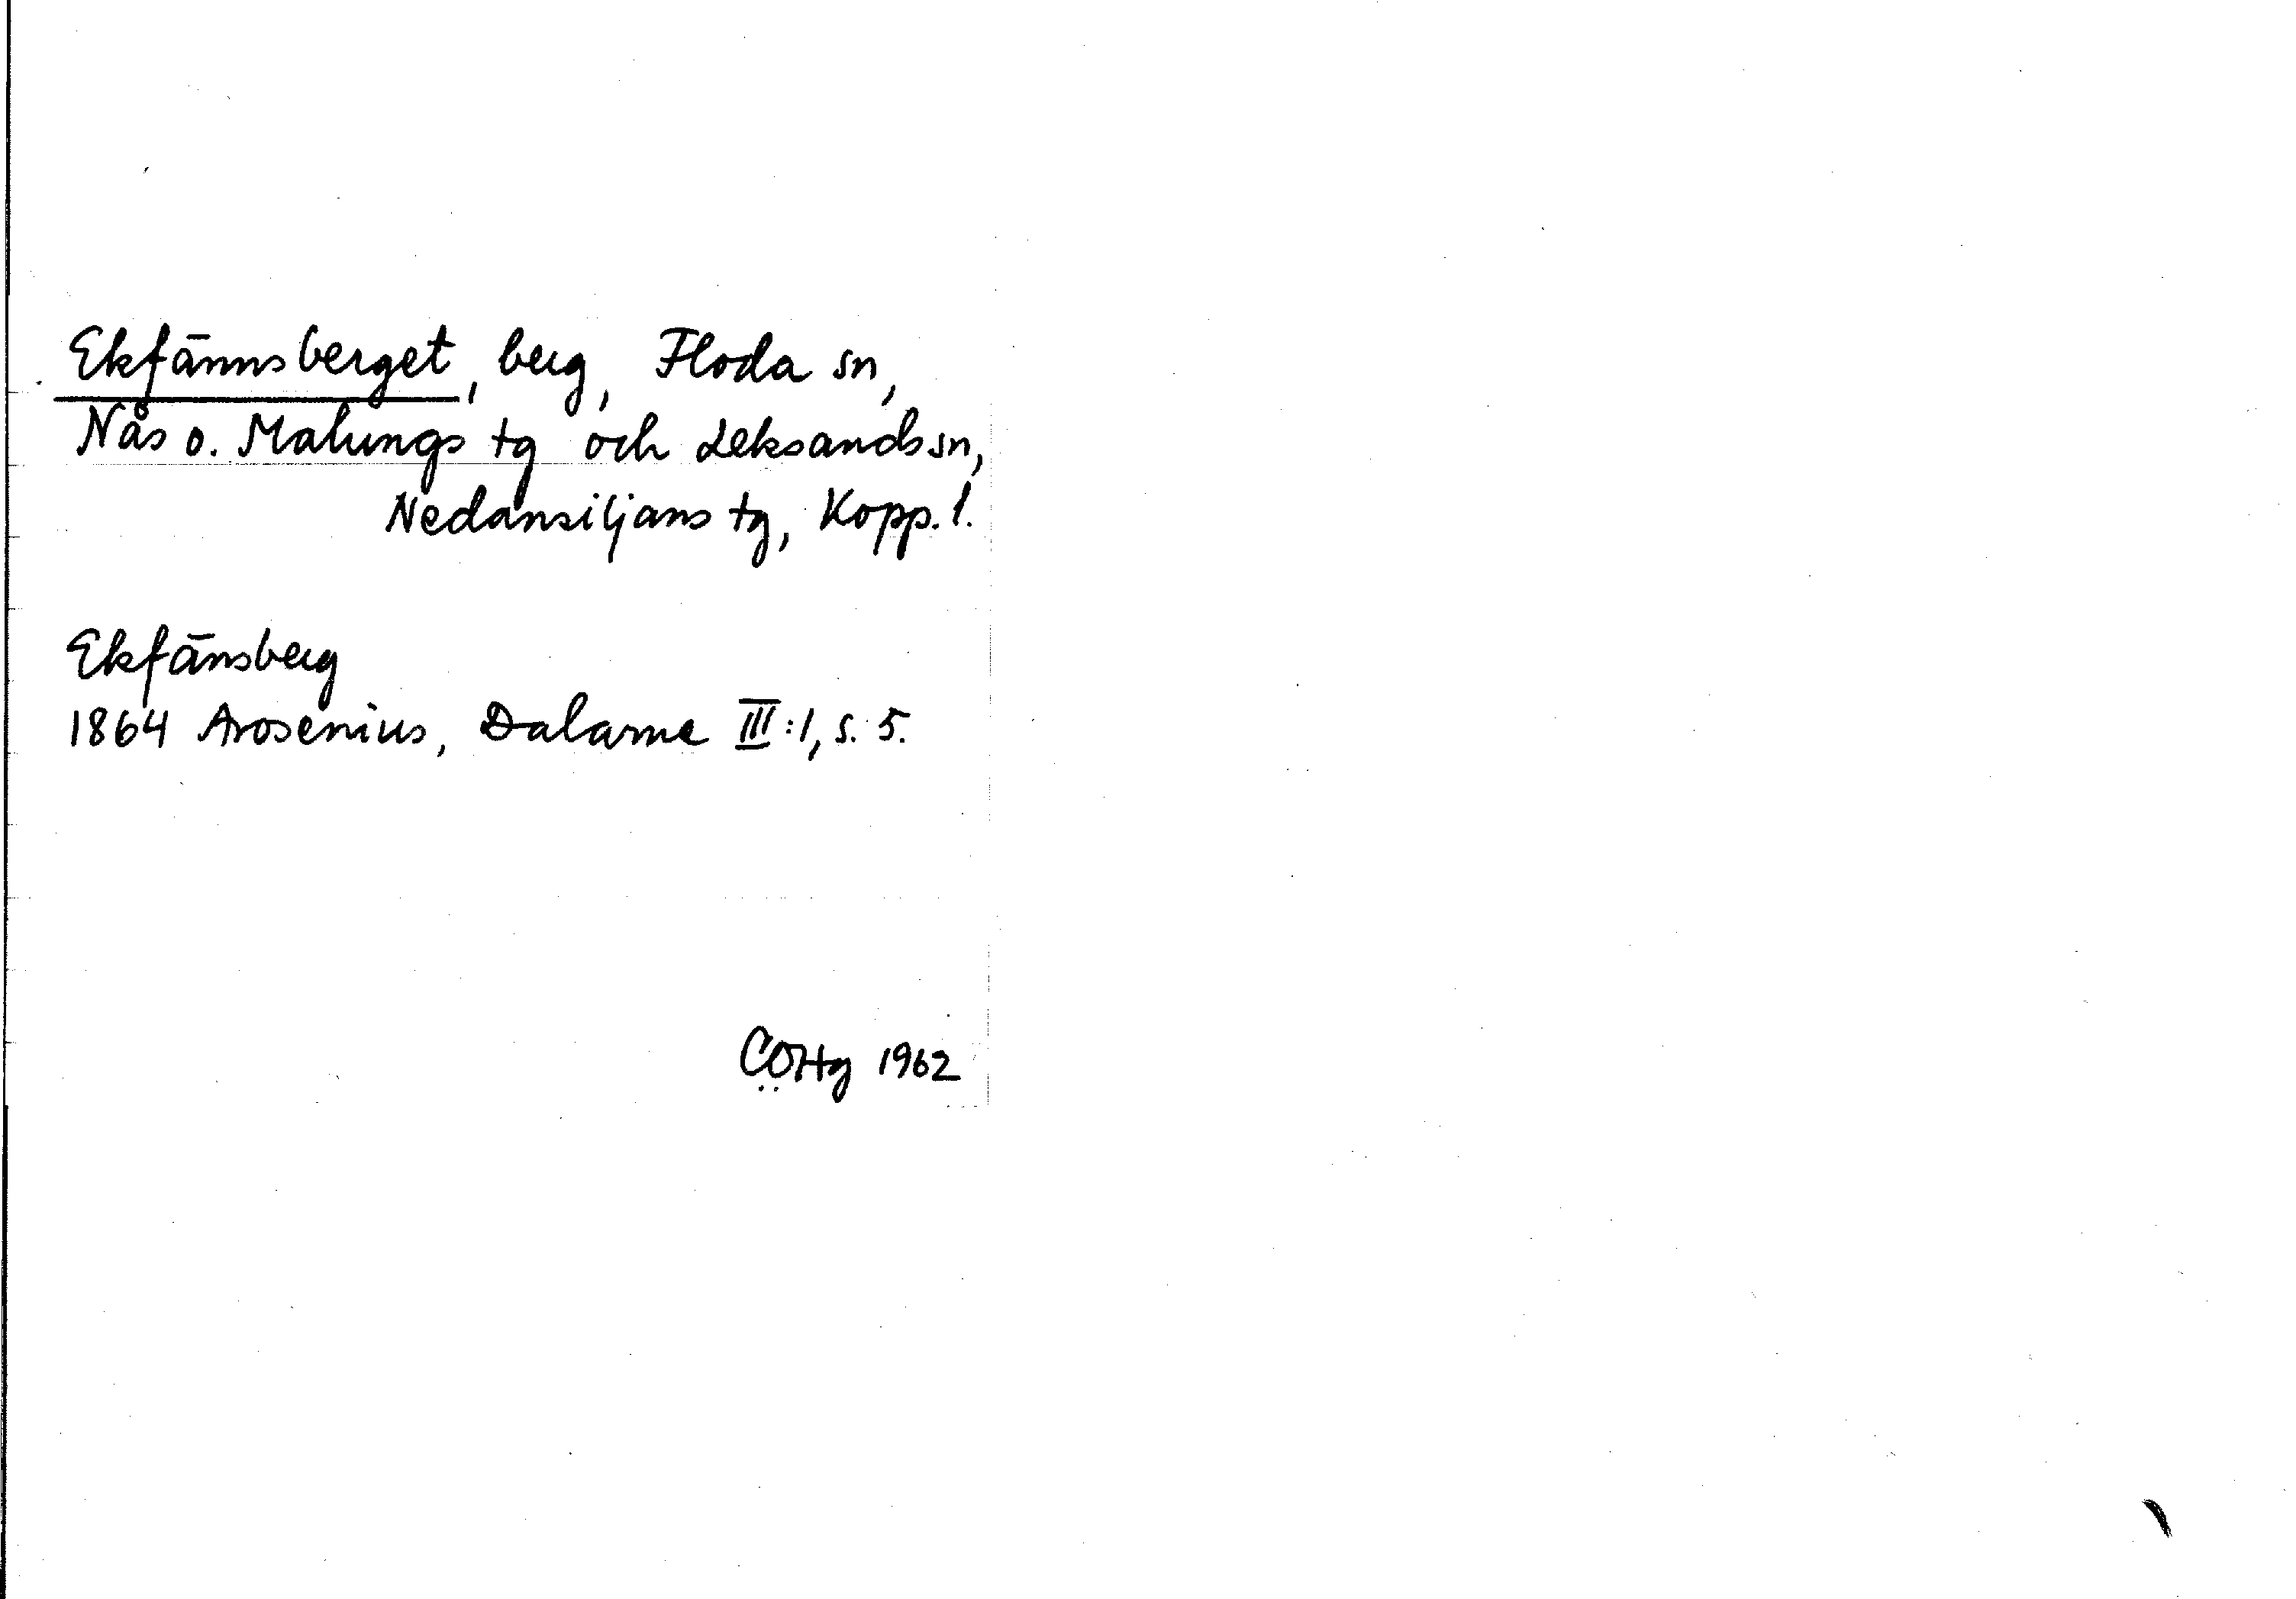 Ekfännsberget, berg, Floda sn,
Nås o. Malungs tg och Leksands sn,
Nedansiljans tg, Kopp. l.
Ekfänsberg
1864 Arosenius, Dalarne III:1, s. 5.
CÖHg 1962